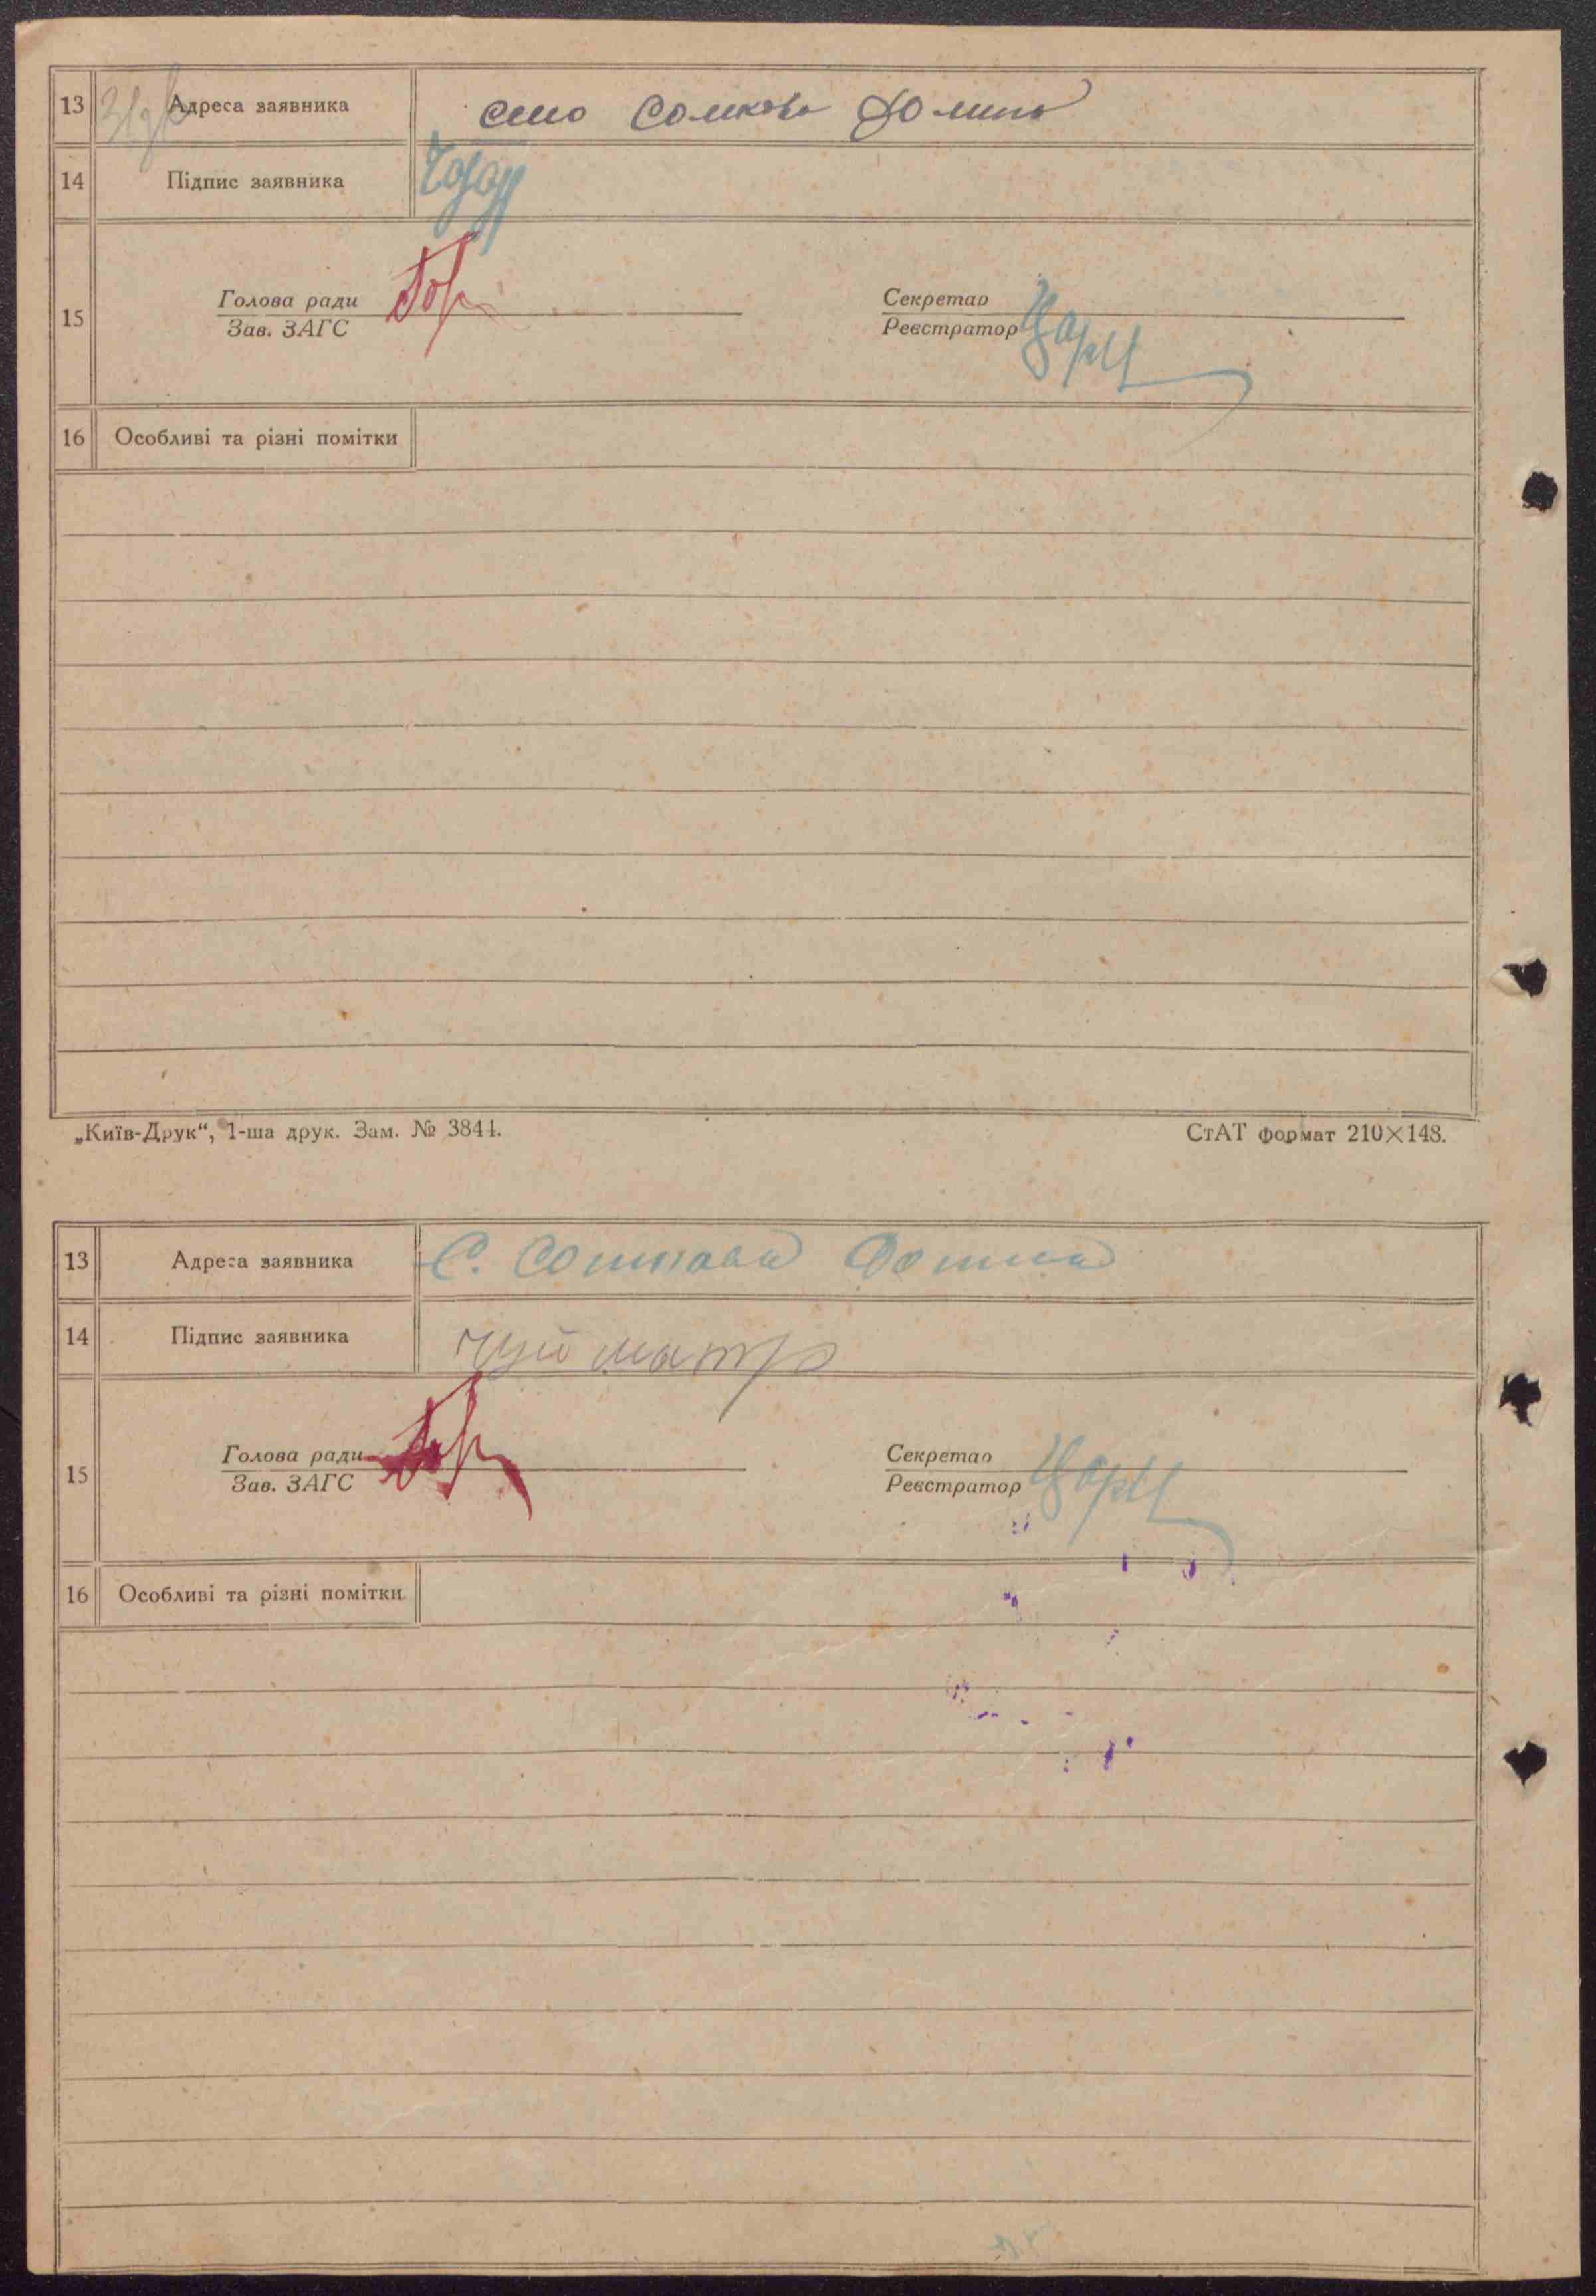 13 Адреса заявника село Сомкова Долина
14 Підпис заявника
15 Голова ради Секретар
Зав. ЗАГС Реєстратор
16 Особливі та різні помітки
„Київ-Друк“, 1-ша друк. Зам. № 3844. СтАТ формат 210×148.
13 Адреса заявника С. Сомкова Долина
14 Підпис заявника
15 Голова ради Секретар
Зав. ЗАГС Реєстратор
16 Особливі та різні помітки